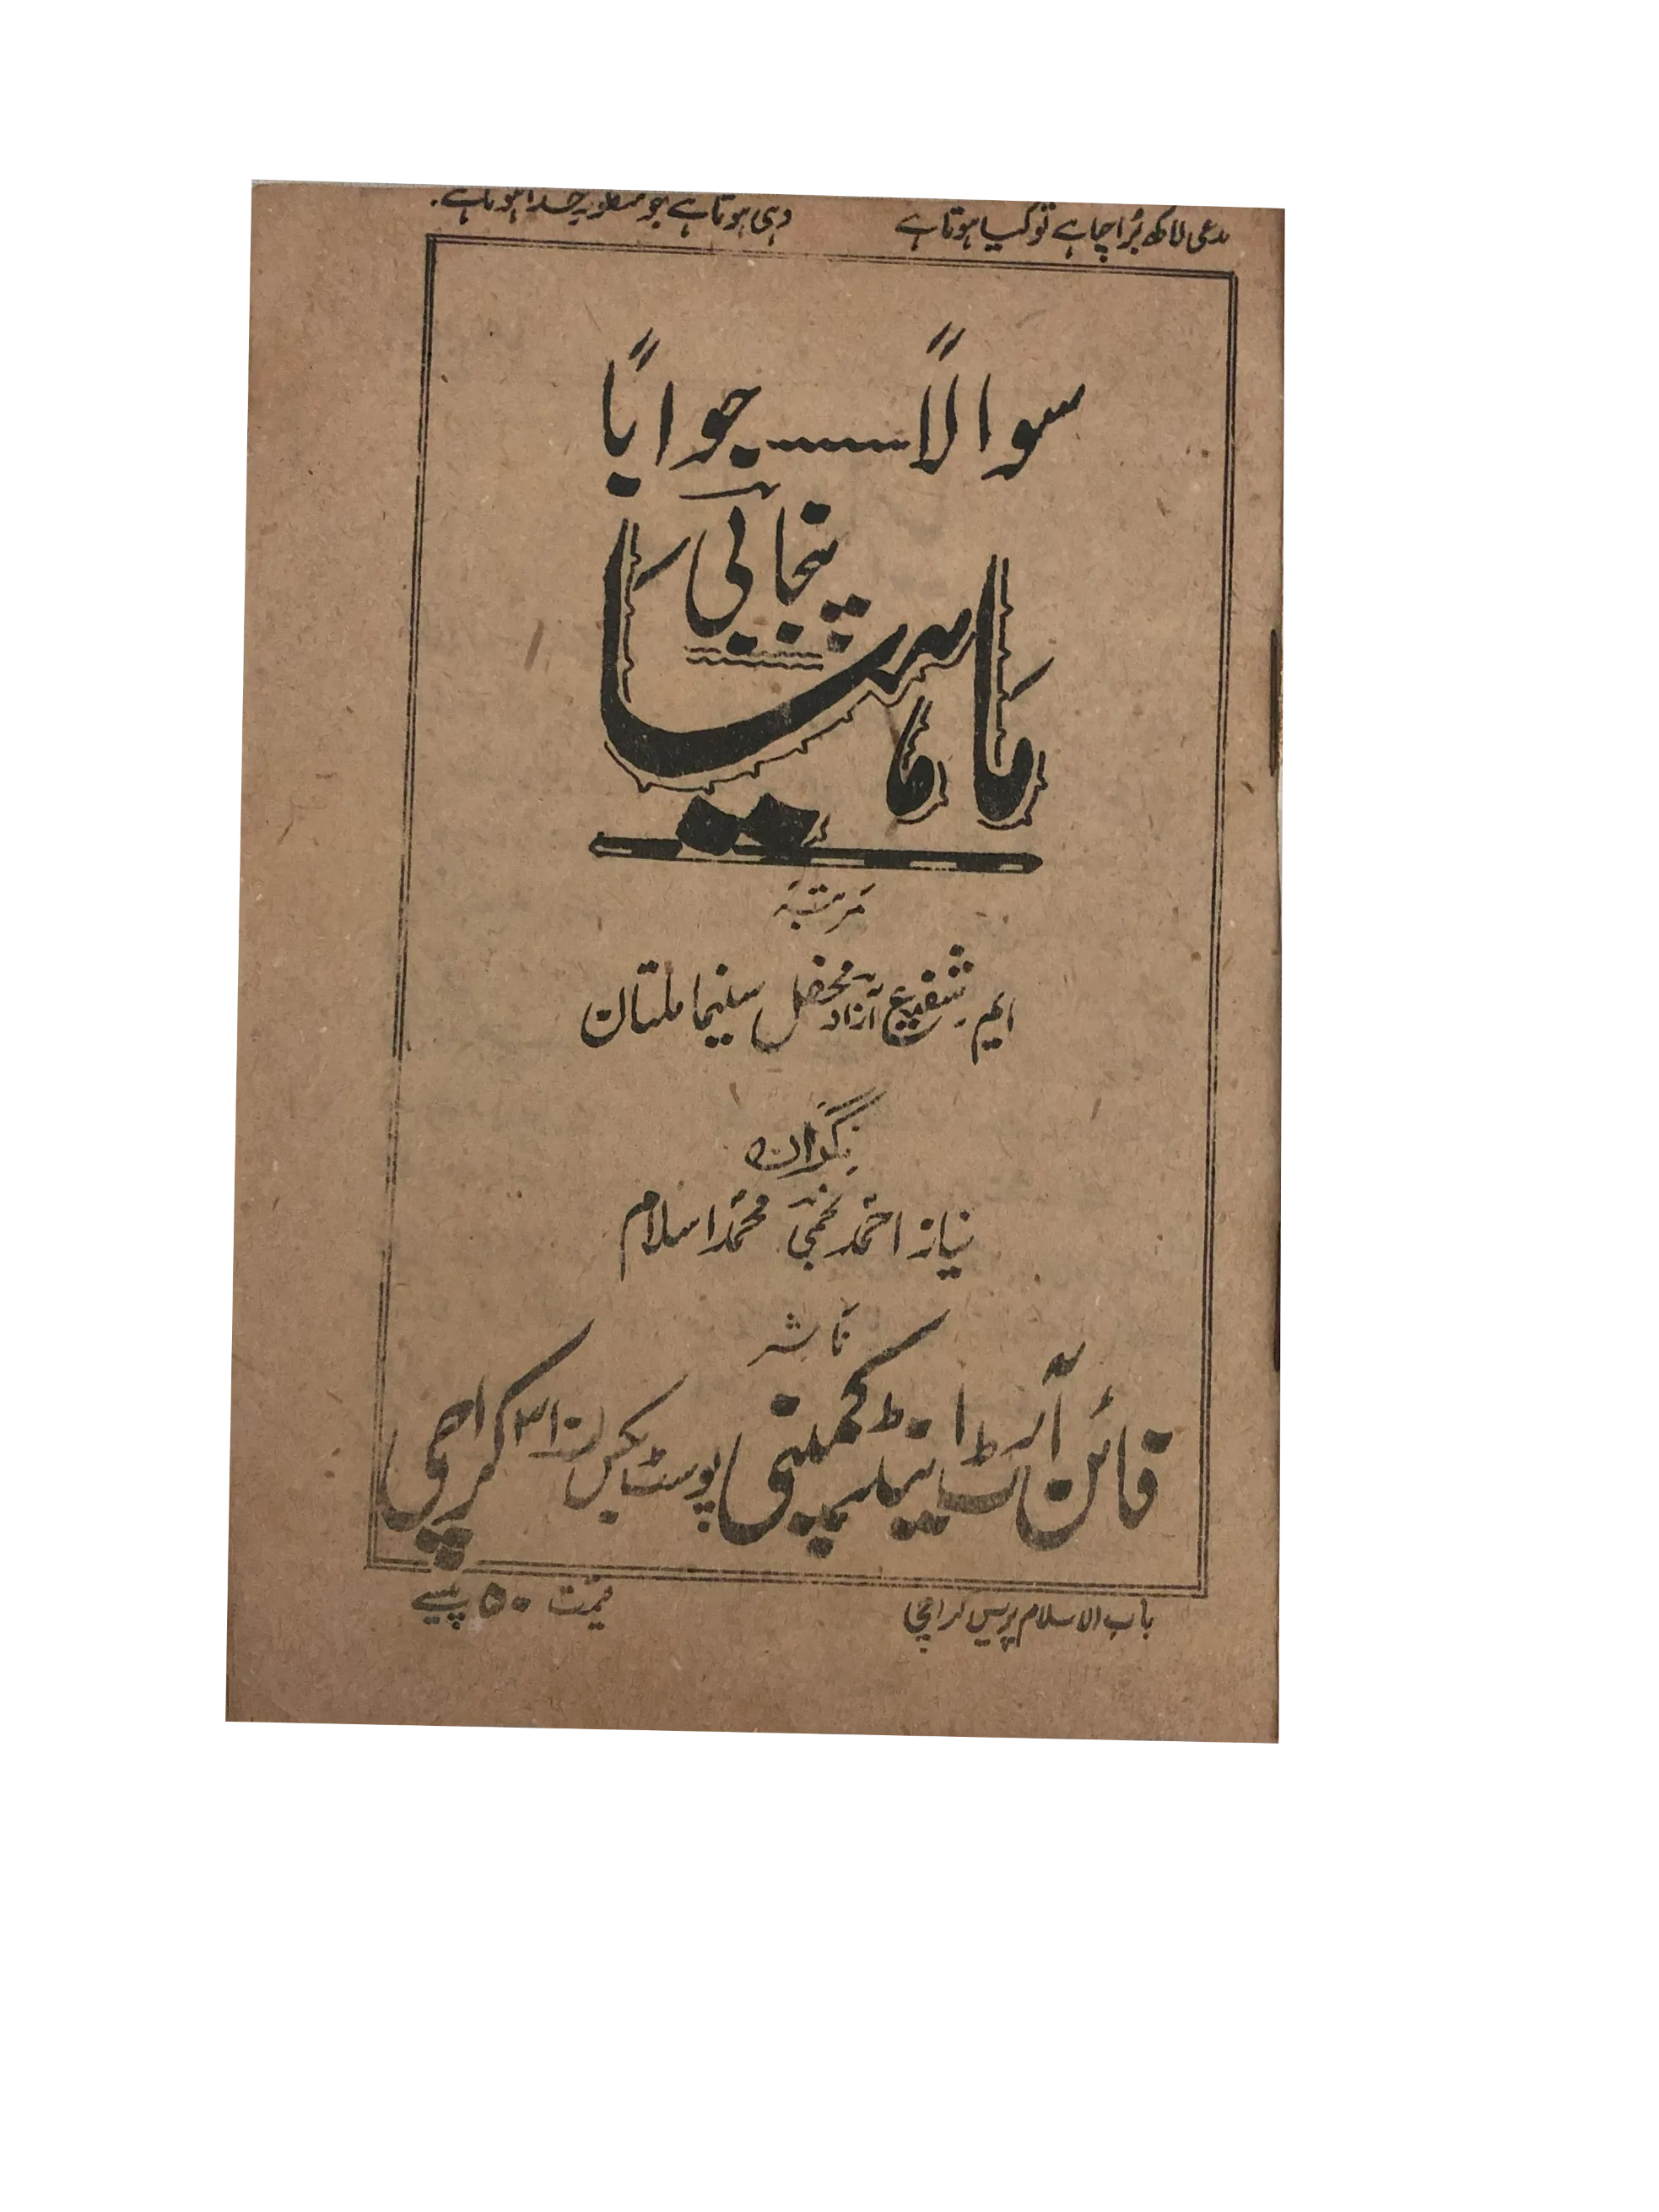 مدعی لاکھ بُرا چاہے تو کیا ہوتا ہے وہی ہوتا ہے جو منظورِ خدا ہوتا ہے.
سوالاً ـــــ جواباً
پنجابی
ماہیا
مرتبہ
ایم شفیع آزاد محفل سنیما ملتان
نگران
نیاز احمد نجمی محمد اسلام
ناشر
فائن آرٹ اینڈ کمپنی پوسٹ بکس کراچی
باب الاسلام پریس کراچی قیمت ۵۰ پیسے